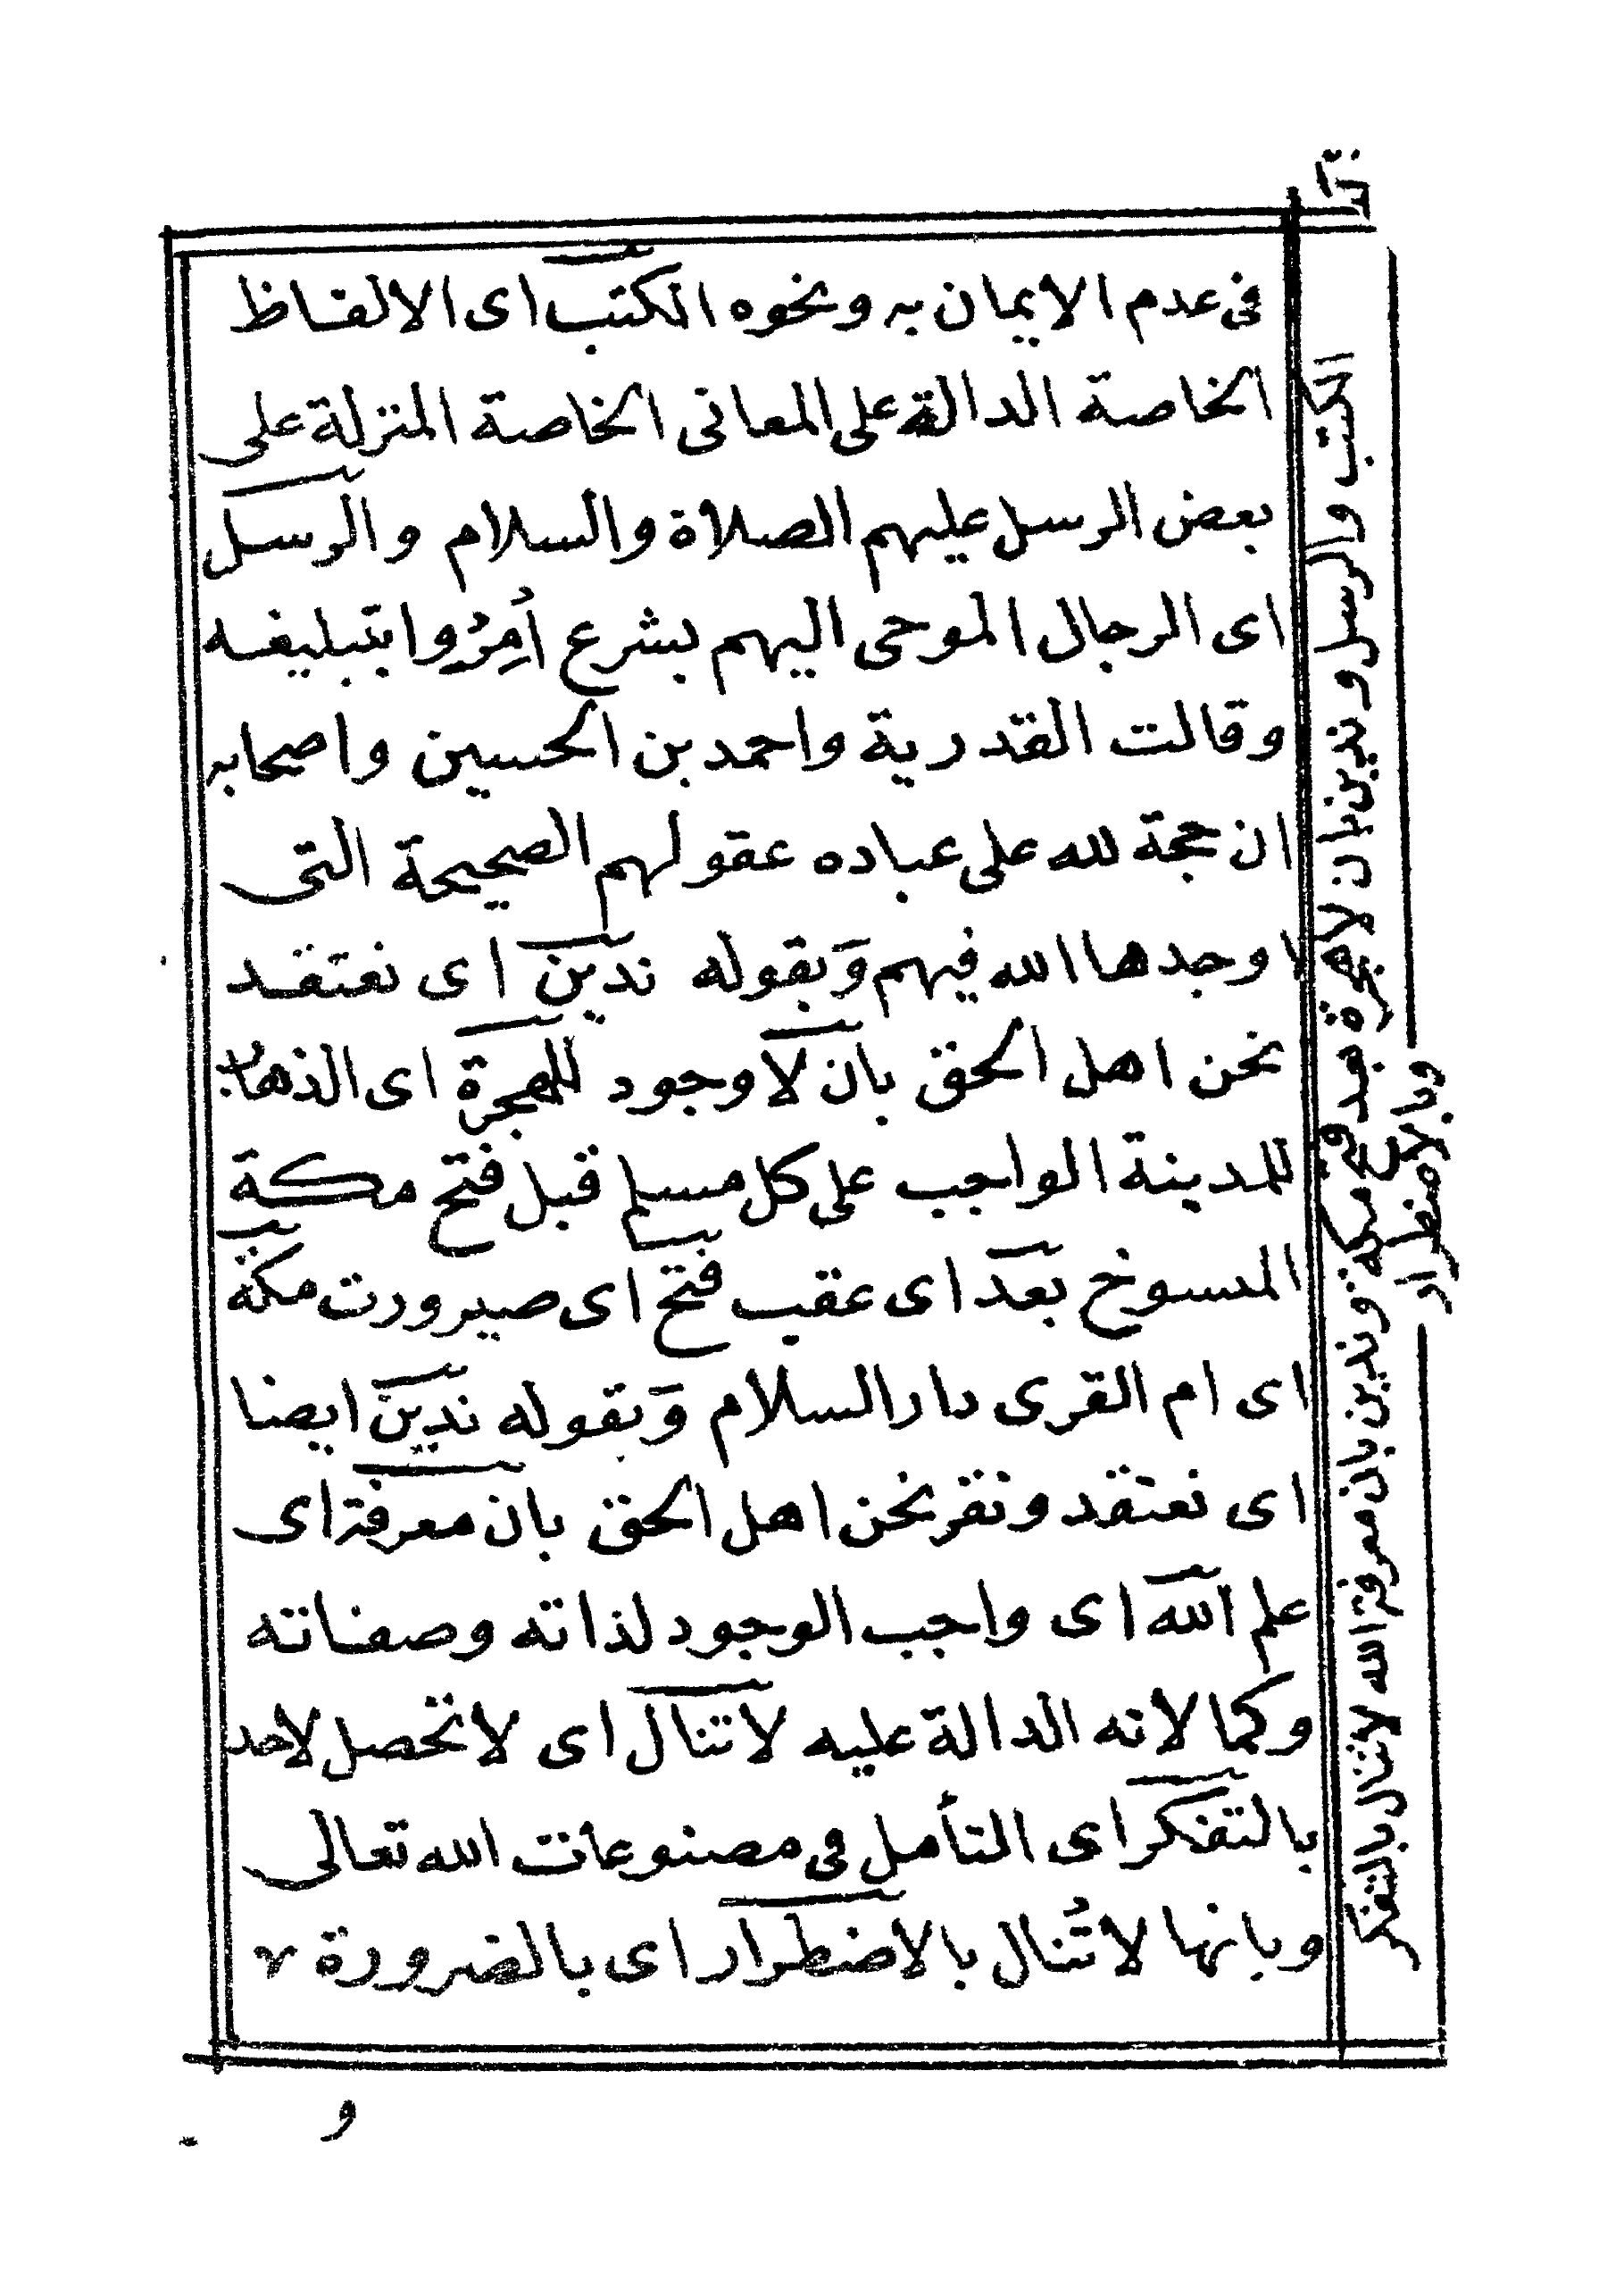 فى عدم الايمان به ونحوه الكتب اى الالفاظ
الخاصة الدالة على المعانى الخاصة المنزلة على
بعض الرسل عليهم الصلاة والسلام والرسل
اى الرجال الموحى اليهم بشرع أُمِرُوا بتبليغه
وقالت القدرية واحمد بن الحسين واصحابه
ان حجة لله على عباده عقولهم الصحيحة التى
اوجدها الله فيهم وَبقوله ندين اى نعتقد
نحن اهل الحق بان لا وجود للهجرة اى الذهاب
للمدينة الواجب على كل مسلم قبل فتح مكة
المنسوخ بعد اى عقب فتح اى صيرورت مكة
اى ام القرى دار السلام وَبقوله ندين ايضا
اى نعتقد ونقر نحن اهل الحق بان معرفة اى
علم الله اى واجب الوجود لذاته وصفاته
وكمالاته الدالة عليه لا تنال اى لا تحصل لاحد
بالتفكر اى التأمل فى مصنوعات الله تعالى
وبانها لا تُنال بالاضطرار اى بالضرورة
الكتب والرسل وندين بان لا هجرة بعد فتح مكة وندين بان معرفة الله لا تنال بالتفكر
وبالاضطرار
و